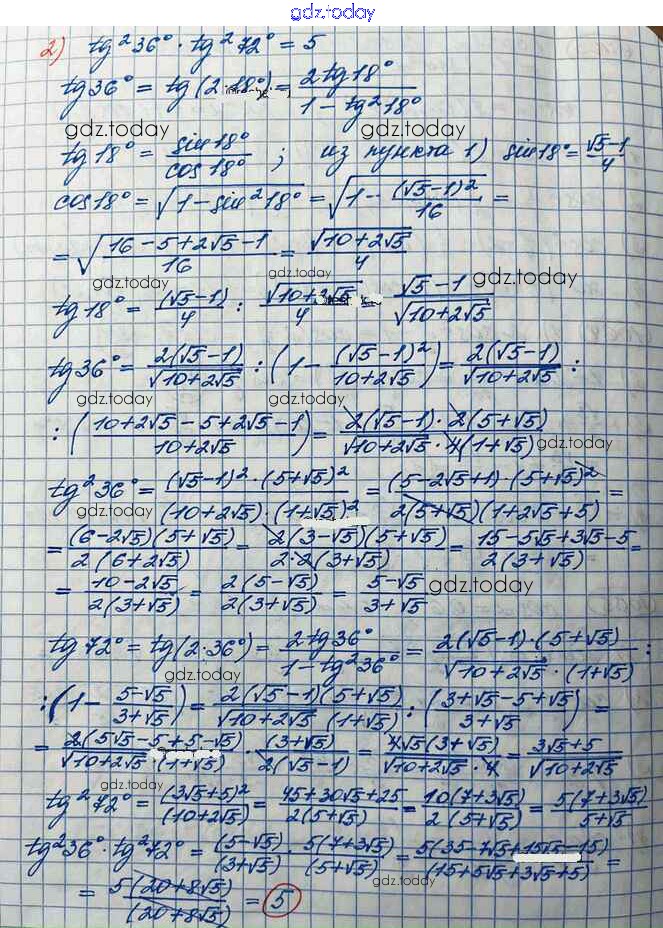 gdz.today
2) tg²36° · tg²72° = 5
tg36° = tg(2·18°) = 2tg18° / (1 − tg²18°)
gdz.today
tg18° = sin18° / cos18° ; из пункта 1) sin18° = (√5−1)/4
cos18° = √(1−sin²18°) = √(1 − (√5−1)²/16) =
= √((16−5+2√5−1)/16) = √(10+2√5)/4
gdz.today gdz.today gdz.today
tg18° = (√5−1)/4 : √(10+2√5)/4 = (√5−1)/√(10+2√5)
gdz.today
tg36° = 2(√5−1)/√(10+2√5) : (1 − (√5−1)²/(10+2√5)) = 2(√5−1)/√(10+2√5) :
gdz.today gdz.today
: ((10+2√5−5+2√5−1)/(10+2√5)) = 2(√5−1)·2(5+√5) / (√(10+2√5)·4(1+√5))
gdz.today
tg²36° = (√5−1)²·(5+√5)² / ((10+2√5)·(1+√5)²) = (5−2√5+1)·(5+√5)² / (2(5+√5)(1+2√5+5)) =
gdz.today gdz.today
= (6−2√5)(5+√5) / (2(6+2√5)) = 2(3−√5)(5+√5) / (2·2(3+√5)) = (15−5√5+3√5−5) / (2(3+√5)) =
= (10−2√5) / (2(3+√5)) = 2(5−√5) / (2(3+√5)) = (5−√5)/(3+√5)
gdz.today
tg72° = tg(2·36°) = 2tg36° / (1−tg²36°) = 2(√5−1)·(5+√5) / (√(10+2√5)·(1+√5)) :
: (1 − (5−√5)/(3+√5)) = 2(√5−1)(5+√5) / (√(10+2√5)(1+√5)) : ((3+√5−5+√5)/(3+√5)) =
= 2(5√5−5+5−√5) / (√(10+2√5)·(1+√5)) · (3+√5)/(2(√5−1)) = 4√5(3+√5) / (√(10+2√5)·4) = (3√5+5)/√(10+2√5)
gdz.today gdz.today
tg²72° = (3√5+5)²/(10+2√5) = (45+30√5+25)/(2(5+√5)) = 10(7+3√5)/(2(5+√5)) = 5(7+3√5)/(5+√5)
tg²36°·tg²72° = (5−√5)/(3+√5) · 5(7+3√5)/(5+√5) = 5(35−7√5+15√5−15)/(15+5√5+3√5+5) =
gdz.today
= 5(20+8√5)/(20+8√5) = 5